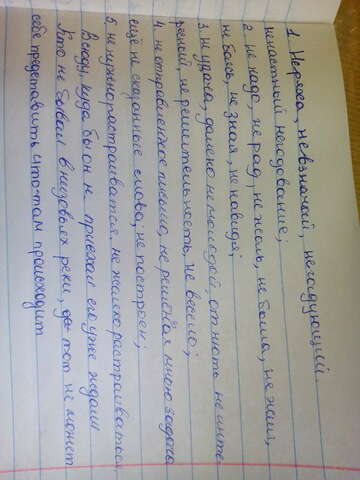 1. Неряха, невзначай, негодующий.
ненастный негодование;
2. не надо, не рад, не жаль, не была, не наш,
не боясь, не зная, не навидя;
3. не удача, далеко не молодой, отнють не инте-
ресный, не решительность, не весело;
4. не отправленное письмо, не решёная мною задача
ещё не сказанные слова, не построен;
5. не нужно растраиваться, не желко ростраиваться.
Всюду, куда бы он не приехал его уже ждали
Кто не бывал в низовьях реки, тот не может
себе представить что там происходит